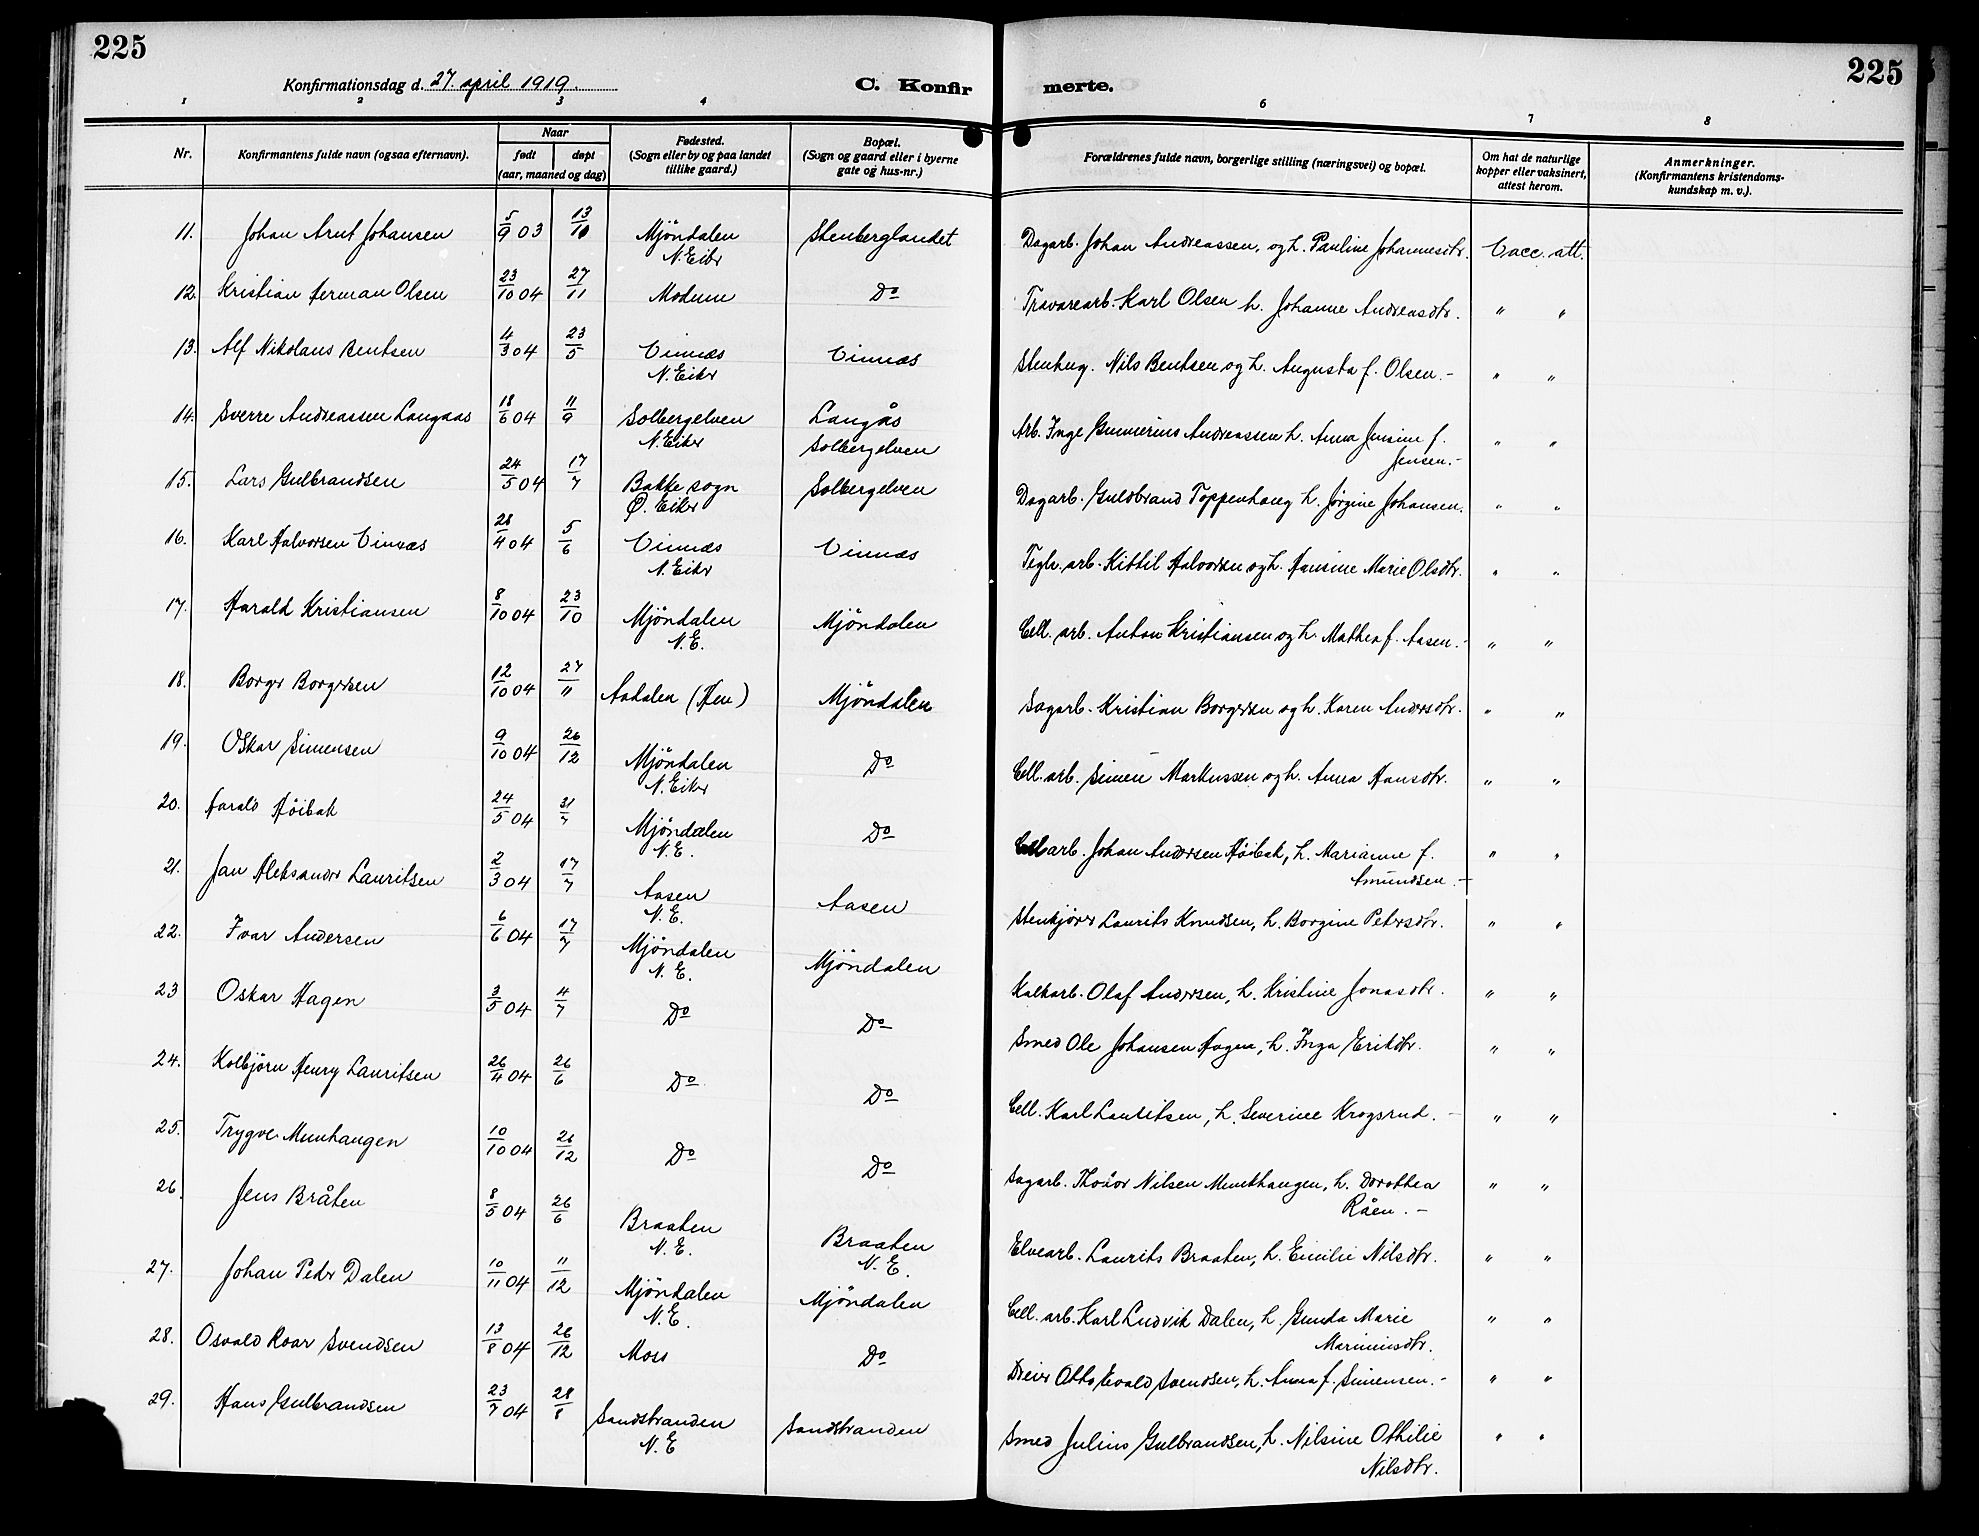 225
Konfirmationsdag d. 27. april 1919.
C. Konfir
merte.
225
1 2 3 4 6 7 8
Nr.
Konfirmantens fulde navn (ogsaa efternavn).
Naar
født døpt
(aar, maaned og dag)
Fødested.
(Sogn eller by og paa landet
tillike gaard.)
Bopæl.
(Sogn og gaard eller i byerne
gate og hus-nr.)
Forældrenes fulde navn, borgerlige stilling (næringsvei) og bopæl.
Om hat de naturlige
kopper eller vaksinert,
attest herom.
Anmerkninger.
(Konfirmantens kristendoms-
kundskap m. v.).
11. Johan Arnt Johansen 5/9 03 13/10 Mjöndalen Stenberglandet Dagarb. Johan Andreassen, og h. Pauline Johannesdtr. Vacc. att.
N. Eikr
12. Kristian Herman Olsen 23/10 04 27/11 Modum Do Travarearb. Karl Olsen h. Johanne Andreasdtr. " "
13. Alf Nikolaus Bentsen 4/3 04 23/5 Vinnæs Vinnæs Stenhug. Nils Bentsen og h. Augusta f. Olsen.- " "
N. Eikr
14. Sverre Andreassen Langaas 18/6 04 11/9 Solbergelven Langås Arb. Inge Gunnerius Andreassen h. Anna Jensine f.
N. Eiker Solbergelven Jensen.- " "
15. Lars Gulbrandsen 24/5 04 17/7 Bakke sogn Solbergelven Dagarb. Guldbrand Toppenhaug h. Jörgine Johansen. " "
Ø. Eiker
16. Karl Halvorsen Vinnæs 28/4 04 5/6 Vinnæs Vinnæs Teglv. arb. Kittil Halvorsen og h. Hansine Marie Olsdtr. " "
N. Eikr
17. Harald Kristiansen 8/10 04 23/10 Mjöndalen Mjöndalen Cell. arb. Anton Kristiansen og h. Mathea f. Aasen.- " "
N. E.
18. Borger Borgersen 12/10 04 27/11 Aadalen (Hen) Mjöndalen Sagarb. Kristian Borgersen og h. Karen Andersdtr. " "
19. Oskar Simensen 9/10 04 26/12 Mjöndalen Do Cell. arb. Simen Markussen og h. Anna Hansdtr. " "
N. Eiker
20. Harald Höibak 24/5 04 31/7 Mjöndalen Do Cell arb. Johan Andersen Höibak, h. Marianne f.
N. E. Amundsen.- " "
21. Jan Aleksander Lauritsen 2/3 04 17/7 Aasen Aasen Stenkjörer Laurits Knudsen, h. Borgine Petersdtr. " "
N. E.
22. Ivar Andersen 6/6 04 17/7 Mjöndalen Mjöndalen Kalkarb. Olaf Andersen, h. Kristine Jonasdtr. " "
N. E.
23 Oskar Hagen 3/5 04 4/7 Do Do Smed Ole Johansen Hagen, h. Inga Eriksdtr. " "
24. Kolbjörn Henry Lauritsen 26/4 04 26/6 Do Do Cell. Karl Lauritsen, h. Severine Krogsrud.- " "
25. Trygve Munkhaugen 10/10 04 26/12 Do Do Sagarb. Thodor Nilsen Munkhaugen, h. Dorothea
Råen.- " "
26. Jens Bråten 8/5 04 26/6 Braaten Braaten Elvearb. Laurits Braaten, h. Emilie Nilsdtr. " "
N. E. N. E.
27. Johan Peder Dalen 10/11 04 11/12 Mjöndalen Mjöndalen Cell. arb. Karl Ludvik Dalen, h. Gunda Marie
N. E. Mariniusdtr. " "
28. Osvald Roar Svendsen 13/8 04 26/12 Moss Do Dreier Otto Evald Svendsen, h. Anna f. Simensen.- " "
29. Hans Gulbrandsen 23/7 04 28/8 Sandstranden Sandstranden Smed Julius Gulbrandsen, h. Nilsine Othilie
N. E Nilsdtr. " "